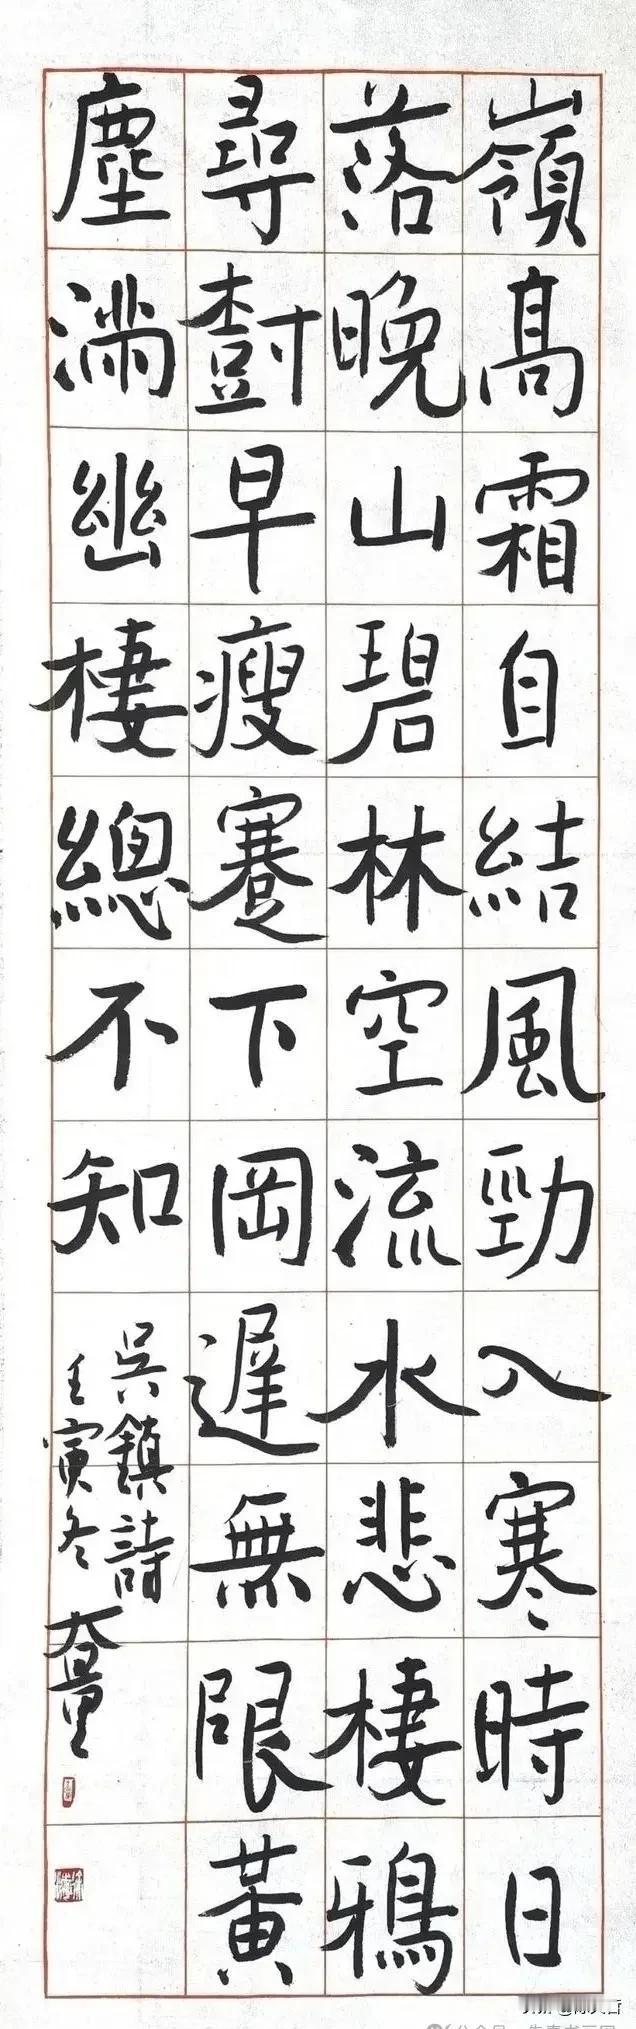 嶺高霜自結風勁入寒時日
落晚山碧林空流水悲棲鴉
尋樹早瘦蹇下岡遲無限黃
塵滿幽棲總不知
吳鎮詩
壬寅冬